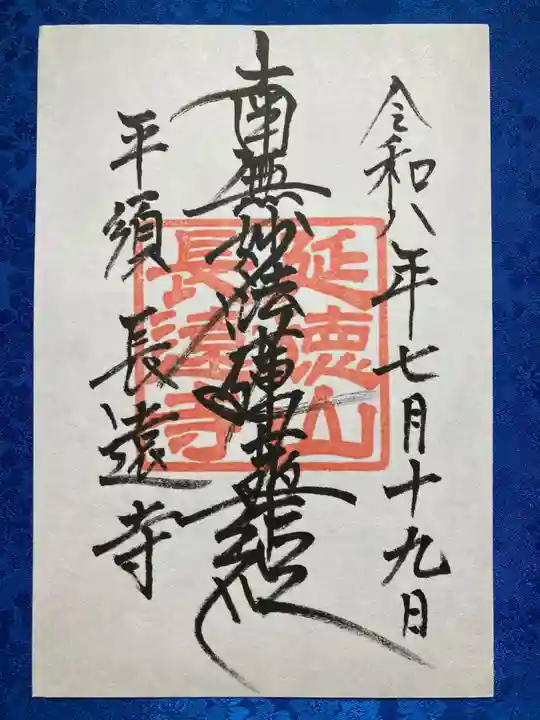 令和八年七月十九日
南無妙法蓮華経
平須 長遠寺
延徳山
長遠寺